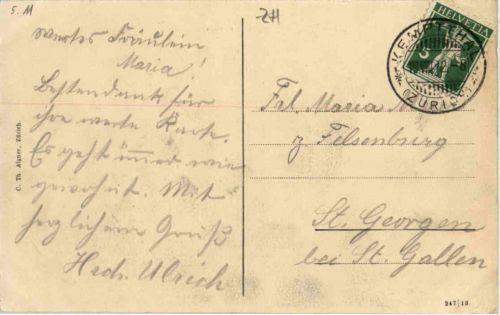 5. M
ZH
wertes Fräulein
Maria!
Bestendank für
ihre werte Karte.
Es geht immer wie
gewohnt. Mit
herzlichem Gruß
Hch. Ulrich
C. Th. Aigner, Zürich.
HELVETIA
5
KEMPTTHAL
(ZÜRICH)
Frl. Maria
z Felsenburg
St. Georgen
bei St. Gallen
247/13